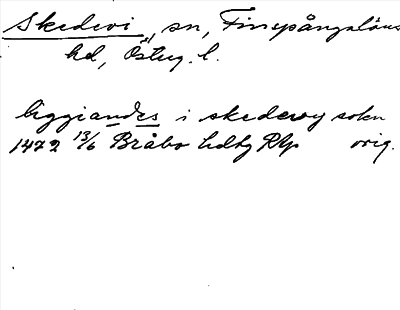 Skedevi, sn, Finspångaläns
hd, Österg. l.
liggiandes i skedewy sokn
1472 13/6 Bråbo hdbg RAp orig.